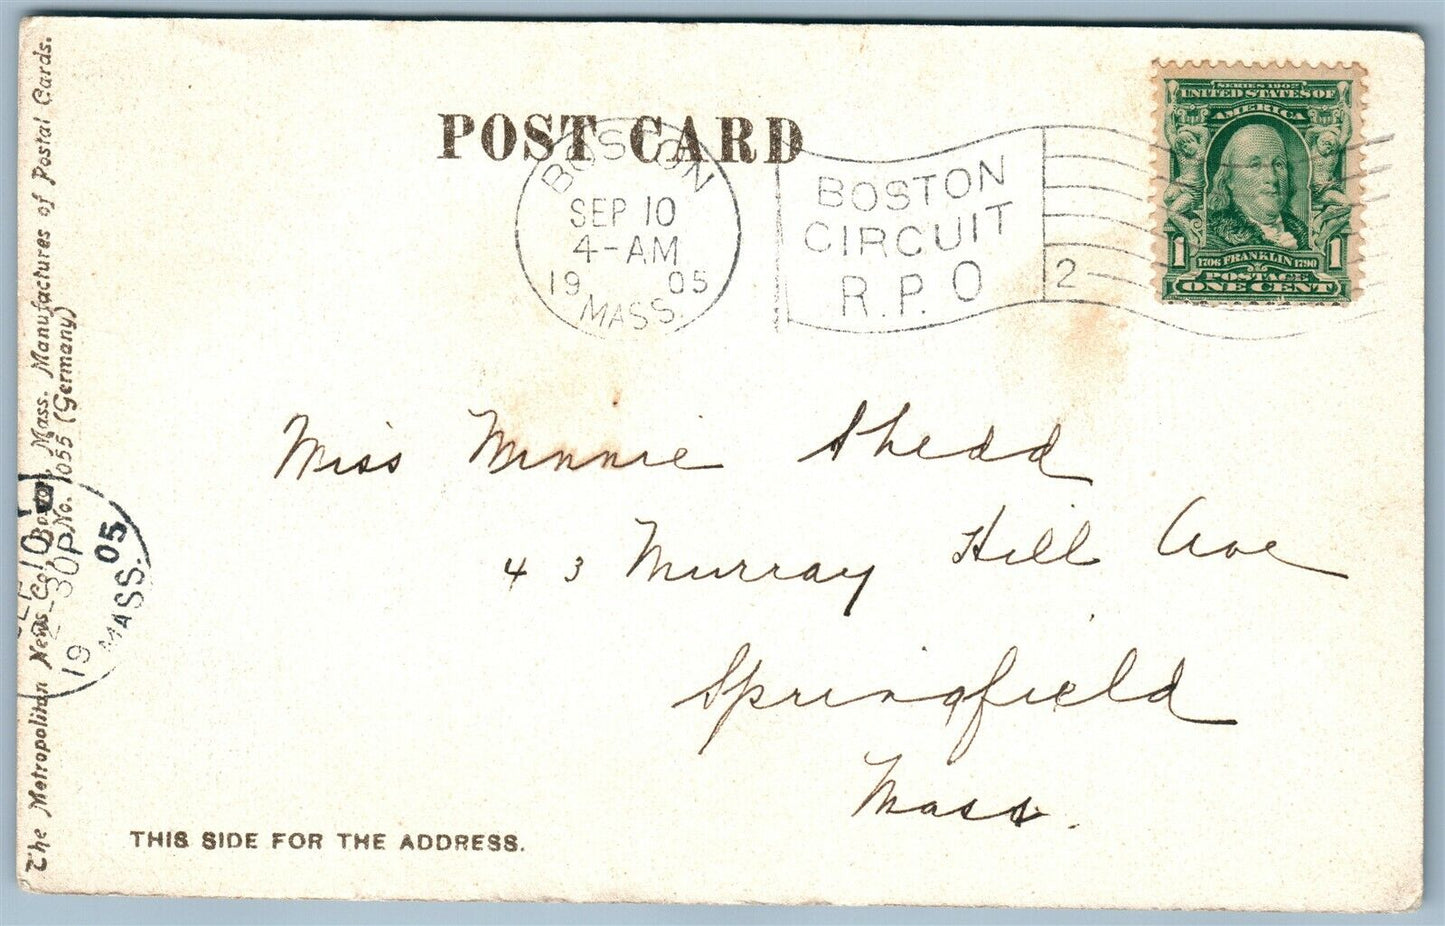 POST CARD
BOSTON
SEP 10
4-AM
1905
MASS.
BOSTON
CIRCUIT
R.P.O
2
SERIES 1902
UNITED STATES OF
AMERICA
1 1
1706 FRANKLIN 1790
POSTAGE
ONE CENT
Miss Minnie Shedd
43 Murray Hill Ave
Springfield
Mass.
THIS SIDE FOR THE ADDRESS.
The Metropolitan News Co., Boston, Mass. Manufactures of Postal Cards.
No. 1055 (Germany)
10
30P
1905
MASS.